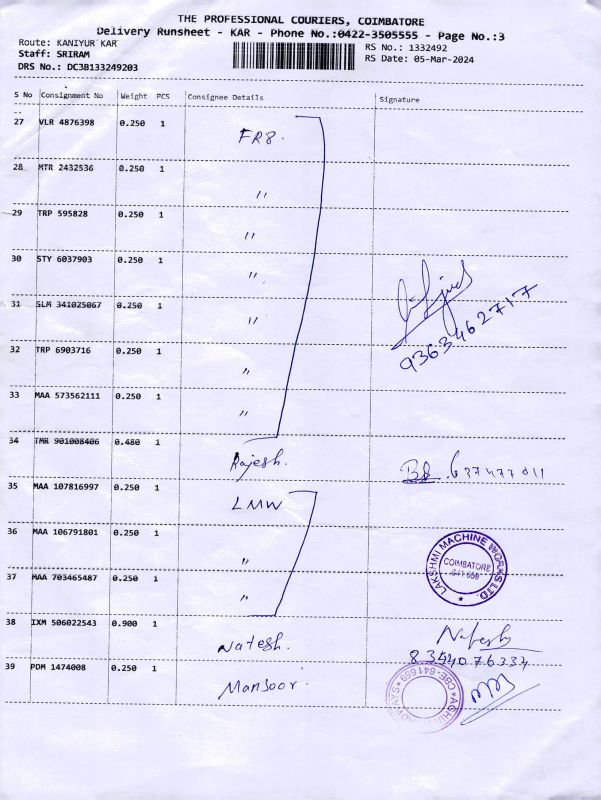 THE PROFESSIONAL COURIERS, COIMBATORE
Delivery Runsheet - KAR - Phone No.:0422-3505555 - Page No.:3
Route: KANIYUR KAR
RS No.: 1332492
Staff: SRIRAM
RS Date: 05-Mar-2024
DRS No.: DC3B133249203
S No Consignment No Weight PCS Consignee Details Signature
27 VLR 4876398 0.250 1 FR8.
28 MTR 2432536 0.250 1 〃
29 TRP 595828 0.250 1 〃
30 STY 6037903 0.250 1 〃
31 SLM 341025067 0.250 1 〃
9363462717
32 TRP 6903716 0.250 1 〃
33 MAA 573562111 0.250 1 〃
34 TMR 901008406 0.480 1 Rajesh.
35 MAA 107816997 0.250 1 LMW
36 MAA 106791801 0.250 1 〃
LAKSHMI MACHINE WORKS LTD.
COIMBATORE
641 659
37 MAA 703465487 0.250 1 〃
38 IXM 506022543 0.900 1 Natesh.
39 PDM 1474008 0.250 1 Mansoor.
CBE-641659